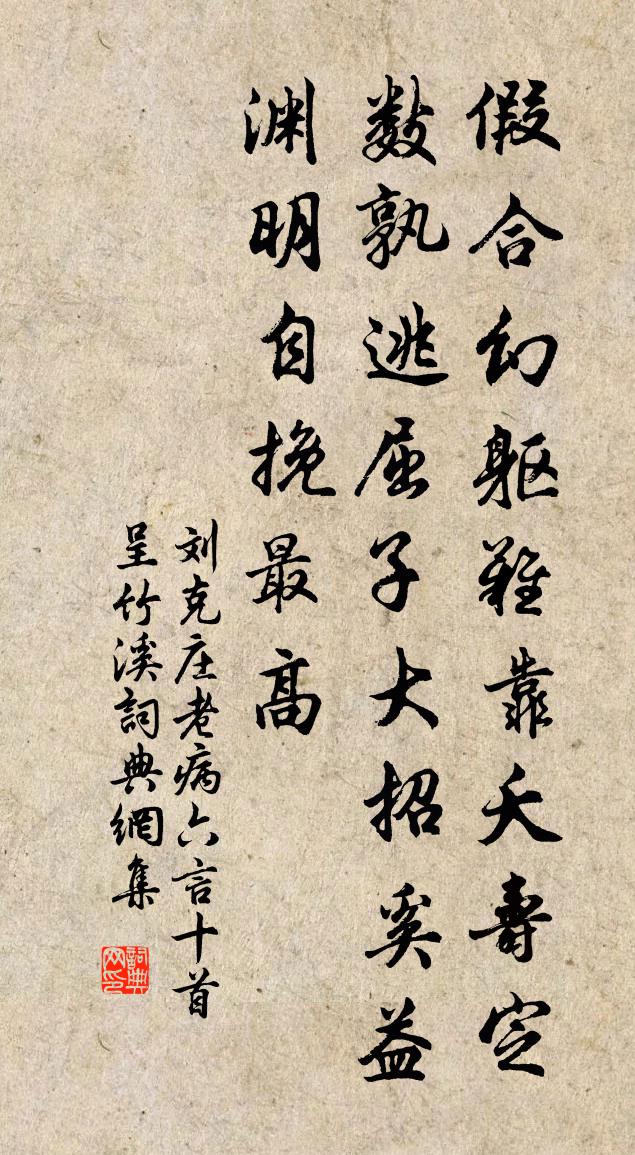 假合幻躯難靠夭壽定
数孰逃屈子大招奚益
渊明自挽最高
刘克庄老病六言十首
呈竹溪詞典網集
詞典网印